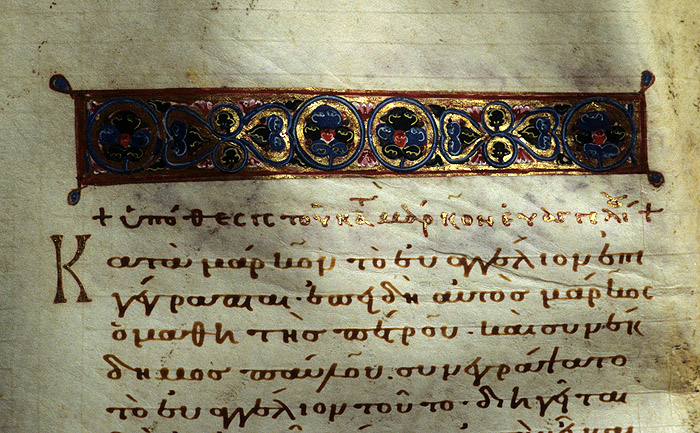 + ὑπόθεσις τοῦ κατὰ μάρκον εὐαγγελί +
Κατὰ μάρκον τὸ εὐαγγέλιον ἐπι
γέγραπται· ἐπειδὴ αὐτὸς μάρκος
ὁ μαθη τῆς πέτρου· καὶ συνέκ
δημος παύλου· συνεγράψατο
τὸ εὐαγγέλιον τοῦτο· διηγεῖται